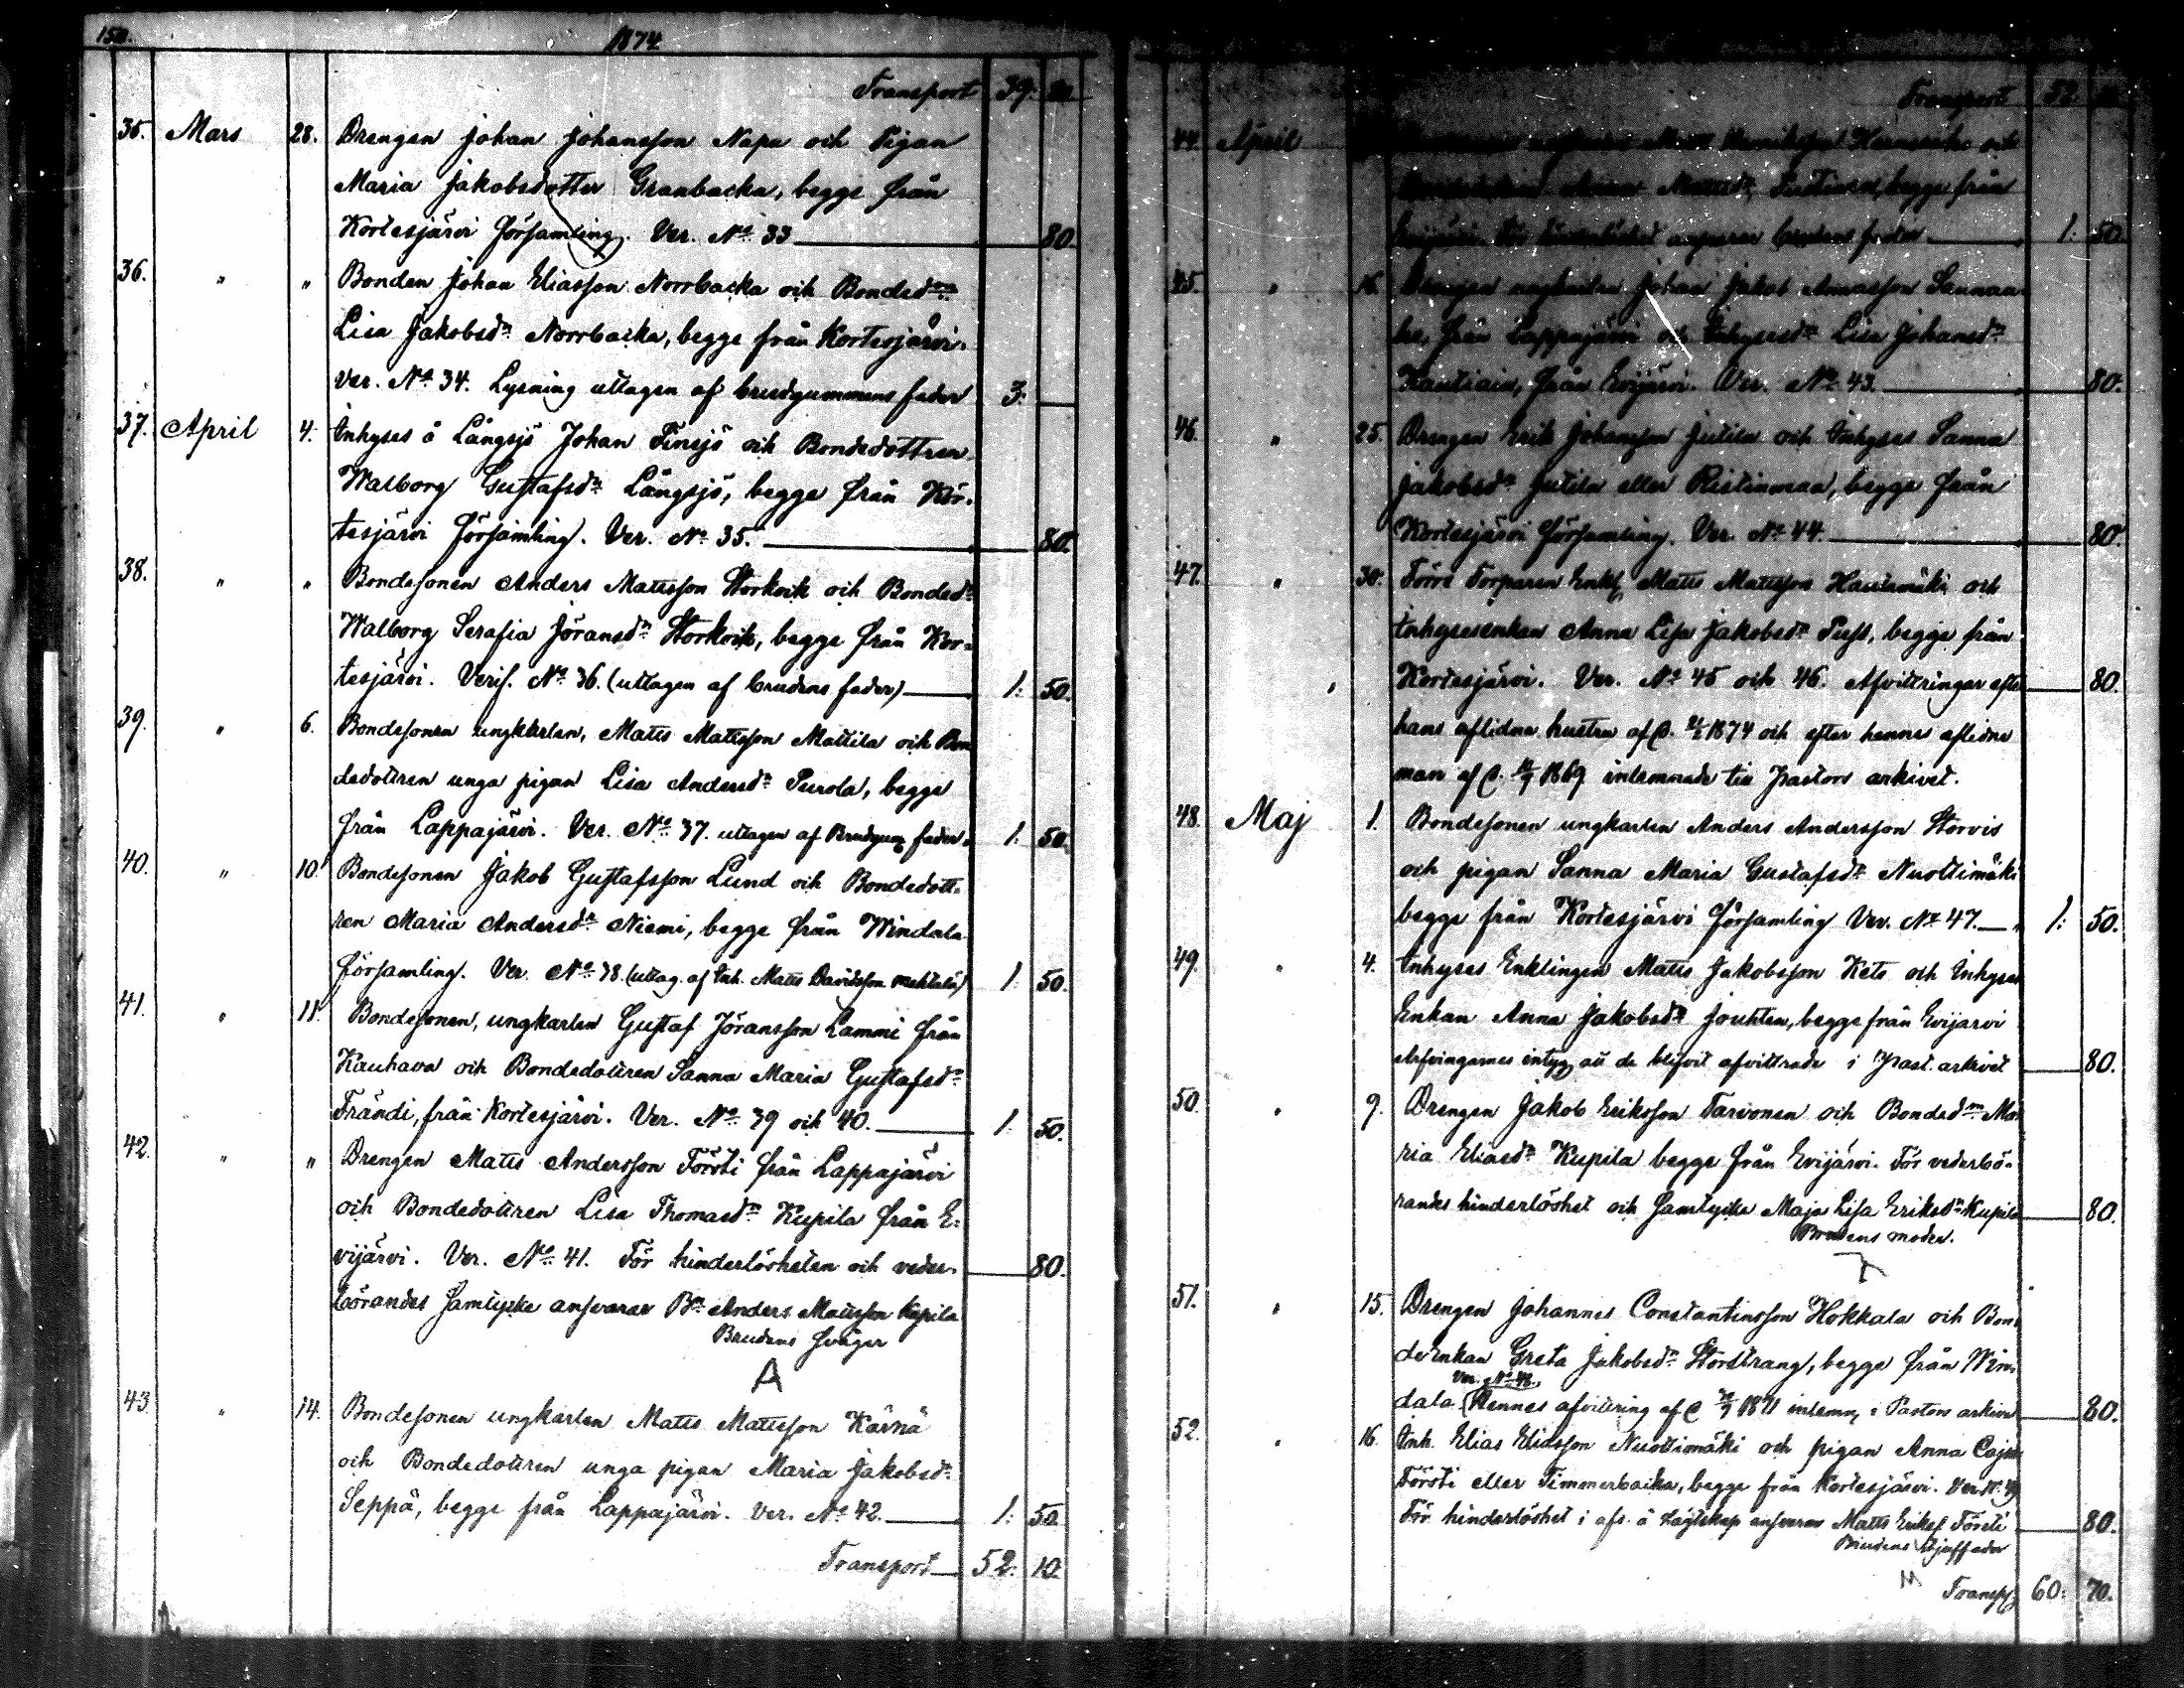 150.
1874
Transport 39:
35. Mars 28. Drengen Johan Johansson Napa och Pigan
Maria Jakobsdotter Granbacka, begge från
Kortesjärvi församling. Ver. No 33 80.
36. " " Bonden Johan Eliasson Norrbacka och Bonded:n
Lisa Jakobsd:r Norrbacka, begge från Kortesjärvi.
Ver. No 34. Lysning uttagen af brudgummens fader 3:
37. April 4. Inhyses å Långsjö Johan Finsjö och Bondedottren
Walborg Gustafsd:r Långsjö, begge från Kor-
tesjärvi församling. Ver. No 35. 80.
38. " " Bondesonen Anders Mattsson Storkvik och Bonded:n
Walborg Serafia Jöransd:r Storkvik, begge från Kor-
tesjärvi. Verif. No 36. (uttagen af brudens fader) 1: 50.
39. " 6. Bondesonen ungkarlen, Matts Mattsson Mattila och Bon
dedottren unga pigan Lisa Andersd:r Purola, begge
från Lappajärvi. Ver. No 37. uttagen af Brudgum. fader. 1: 50.
40. " 10. Bondesonen Jakob Gustafsson Lund och Bondedott-
ren Maria Andersd:r Niemi, begge från Windala
församling. Ver. No 38. (uttag. af Inh. Matts Davidsson Mehtälä) 1: 50.
41. " 11. Bondesonen, ungkarlen Gustaf Jöransson Lammi från
Kauhava och Bondedottren Sanna Maria Gustafsd:r
Frändi, från Kortesjärvi. Ver. No 39 och 40. 1: 50.
42. " " Drengen Matts Andersson Försti från Lappajärvi
och Bondedottren Lisa Thomasd:r Kupila från E-
vijärvi. Ver. No 41. För hinderlösheten och veder- 80.
börandes samtycke ansvarar B:n Anders Mattsson Kupila
Brudens svåger
A
43. " 14. Bondesonen ungkarlen Matts Mattsson Kärnä
och Bondedottren unga pigan Maria Jakobsd:r
Seppä, begge från Lappajärvi. Ver. No 42. 1: 50.
Transport 52: 10.
Transport 52
44. April
begge från
brudens fader 1: 50.
45. " 16. Drengen ungkarlen Johan Jakob
från Lappajärvi och Inhysesd:r Lisa Johansd:r
från Evijärvi. Ver. No 43. 80.
46. " 25. Drengen Erik Johansson Jutila och Inhyses Sanna
Jakobsd:r Jutila eller Ristinmaa, begge från
Kortesjärvi församling. Ver. No 44. 80.
47. " 30. Förre Torparen Enkl. Matts Mattsson Hautamäki och
Inhysesenkan Anna Lisa Jakobsd:r Puss, begge från
Kortesjärvi. Ver. No 45 och 46. Afvittringar efter 80.
hans aflidna hustru af d. 1874 och efter hennes aflidne
man af d. 1869 inlemnade till Pastors arkivet.
48. Maj 1. Bondesonen ungkarlen Anders Andersson Storvis
och pigan Sanna Maria Gustafsd:r Nuottimäki
begge från Kortesjärvi församling Ver. No 47. 1: 50.
49. " 4. Inhyses Enklingen Matts Jakobsson Kets och Inhyses
Enkan Anna Jakobsd:r Jouhten, begge från Evijärvi
Arfvingarnes intyg att de blifvit afvittrade i Past. arkivet 80.
50. " 9. Drengen Jakob Eriksson Tarvonen och Bonded:n Ma
ria Eliasd:r Kupila begge från Evijärvi. För vederbö-
randes hinderlöshet och samtycke Maja Lisa Eriksd:r Kupila 80.
Brudens moder.
51. " 15. Drengen Johannes Constantinsson Hokkala och Bon-
deenkan Greta Jakobsd:r Storstrang, begge från Win-
Ver. No 48.
dala. Hennes afvittring af d 1871 inlemn. i Pastors arkivet 80.
52. " 16. Inh. Elias Eliasson Nuottimäki och pigan Anna Cajsa
Försti eller Timmerbacka, begge från Kortesjärvi. Ver. No. 49
För hinderlöshet i afs. å Lägskap ansvarar Matts Eriks. Försti 80.
Brudens styffader
Transp. 60: 70.